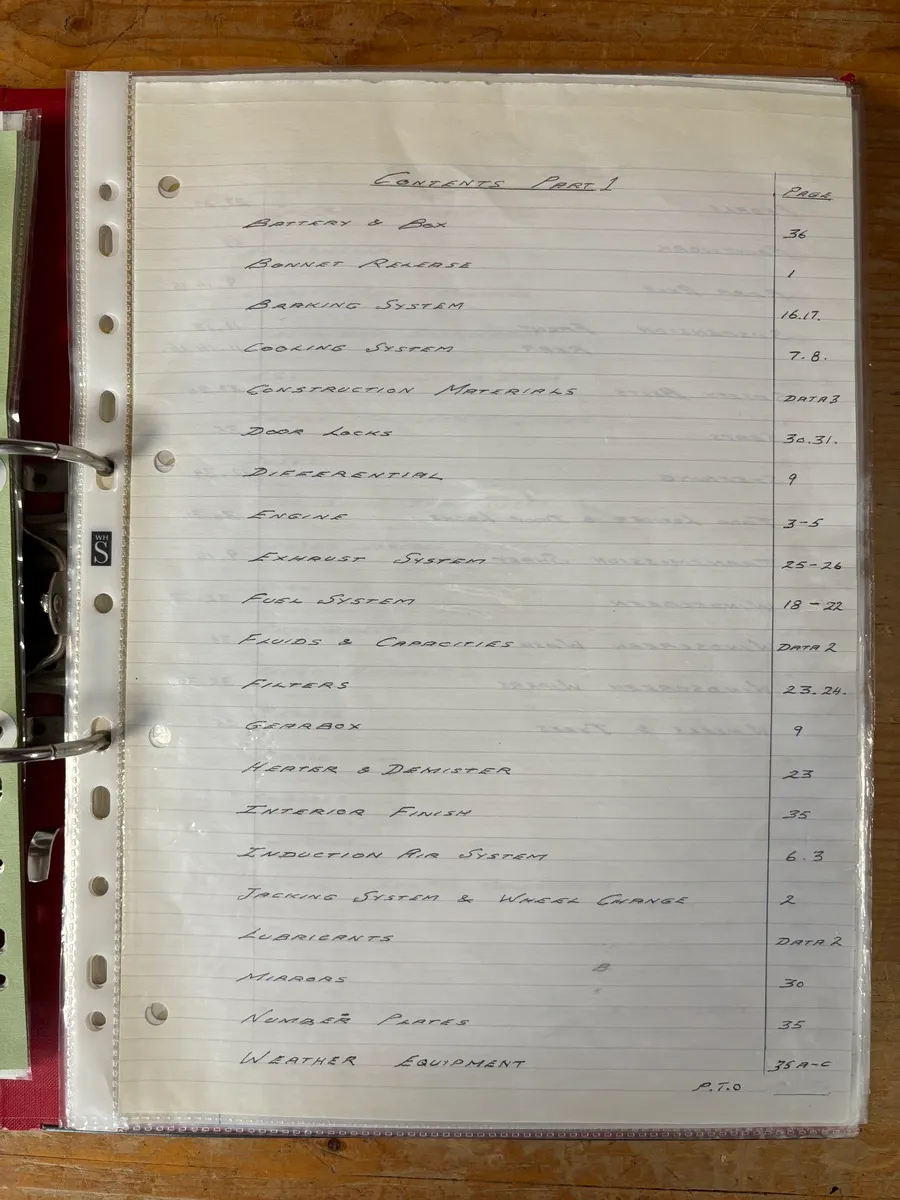 CONTENTS PART 1
PAGE
BATTERY & BOX 36
BONNET RELEASE 1
BRAKING SYSTEM 16.17.
COOLING SYSTEM 7.8.
CONSTRUCTION MATERIALS DATA 3
DOOR LOCKS 30.31.
DIFFERENTIAL 9
ENGINE 3-5
EXHAUST SYSTEM 25-26
FUEL SYSTEM 18-22
FLUIDS & CAPACITIES DATA 2
FILTERS 23.24.
GEARBOX 9
HEATER & DEMISTER 23
INTERIOR FINISH 35
INDUCTION AIR SYSTEM 6.3
JACKING SYSTEM & WHEEL CHANGE 2
LUBRICANTS DATA 2
MIRRORS 30
NUMBER PLATES 35
WEATHER EQUIPMENT 35A-C
P.T.O
WH
S